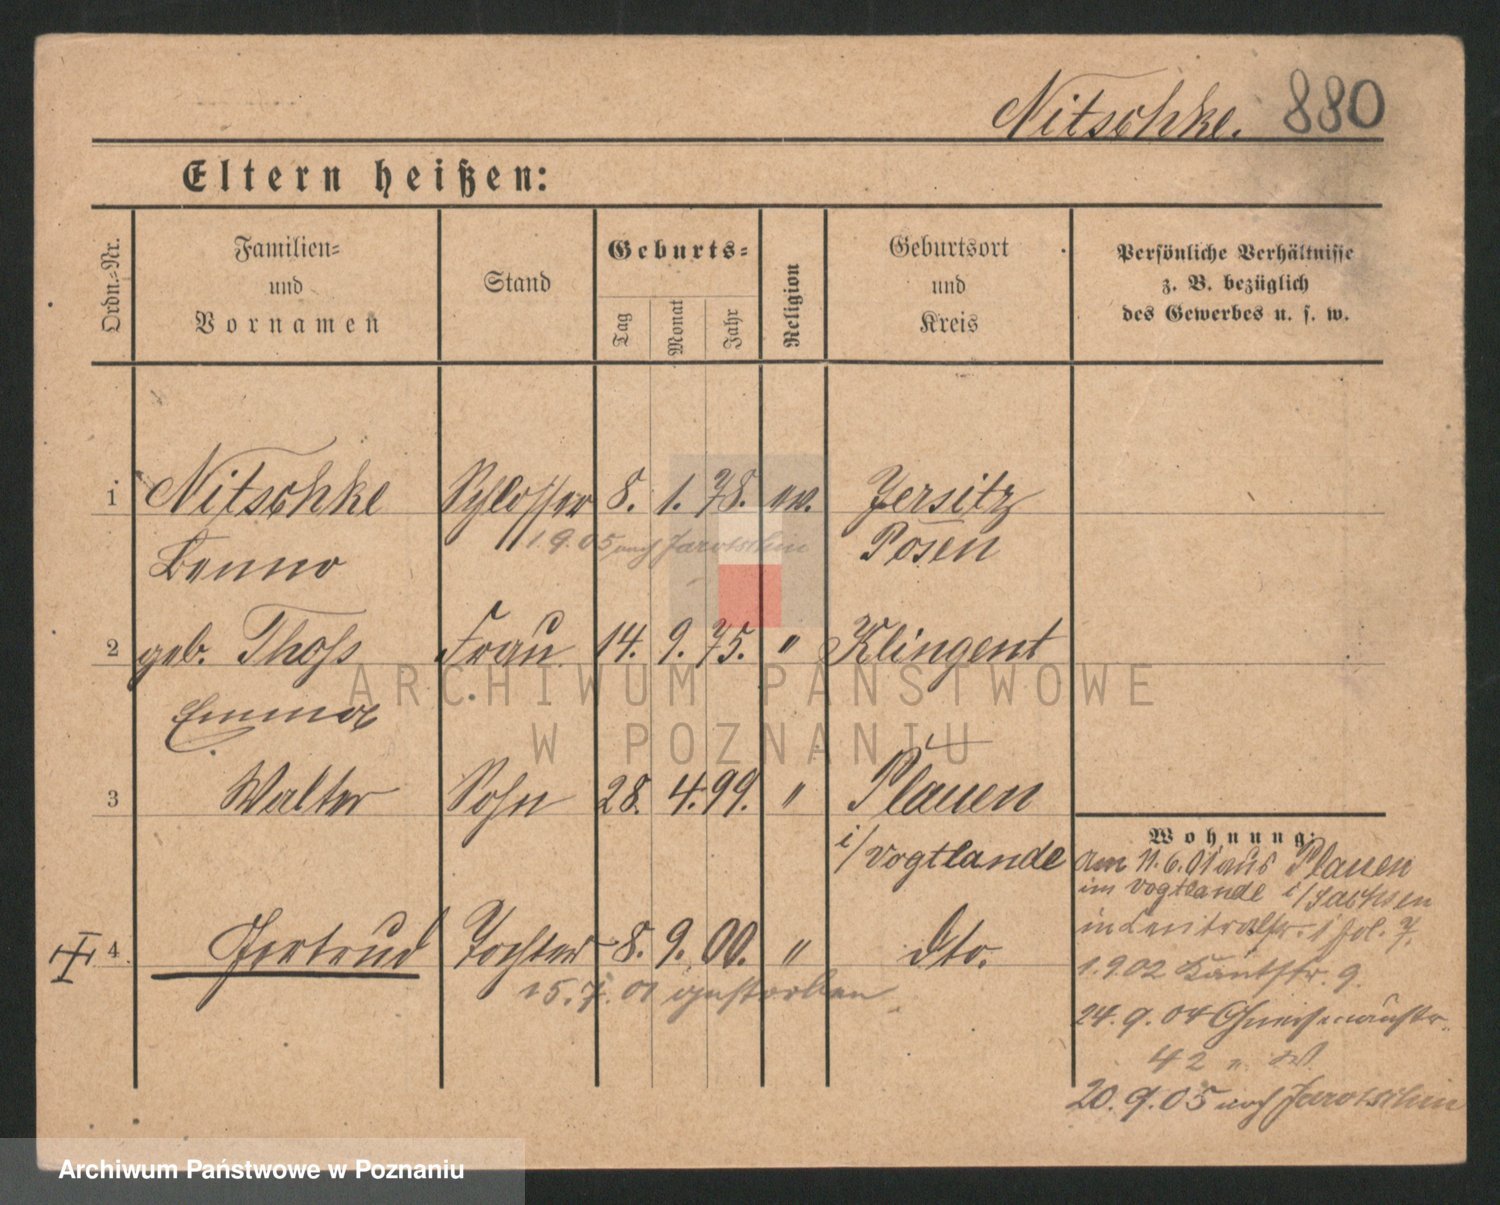 Nitschke. 880
Eltern heißen:
Ordn.-Nr.
Familien-
und
Vornamen
Stand
Geburts-
Tag
Monat
Jahr
Religion
Geburtsort
und
Kreis
Persönliche Verhältnisse
z. B. bezüglich
des Gewerbes u. s. w.
1 Nitschke Schlosser 8. 1. 78. ev. Jersitz
Benno Posen
19.05 nach Jarotschin
2 geb. Thoß Frau 14. 9. 75. " Klingent
Emma
3 Walter Sohn 28. 4. 99. " Plauen
i/Vogtlande
4 Gertrud Tochter 8. 9. 00. " dto.
15.7.01 gestorben
Wohnung:
am 11.6.01 aus Plauen
im Vogtlande i/Sachsen
in Centralstr. 1
1.902 Kantstr. 9.
24.9.04 Gneisenaustr.
42
20.9.05 nach Jarotschin
ARCHIWUM PAŃSTWOWE
W POZNANIU
Archiwum Państwowe w Poznaniu